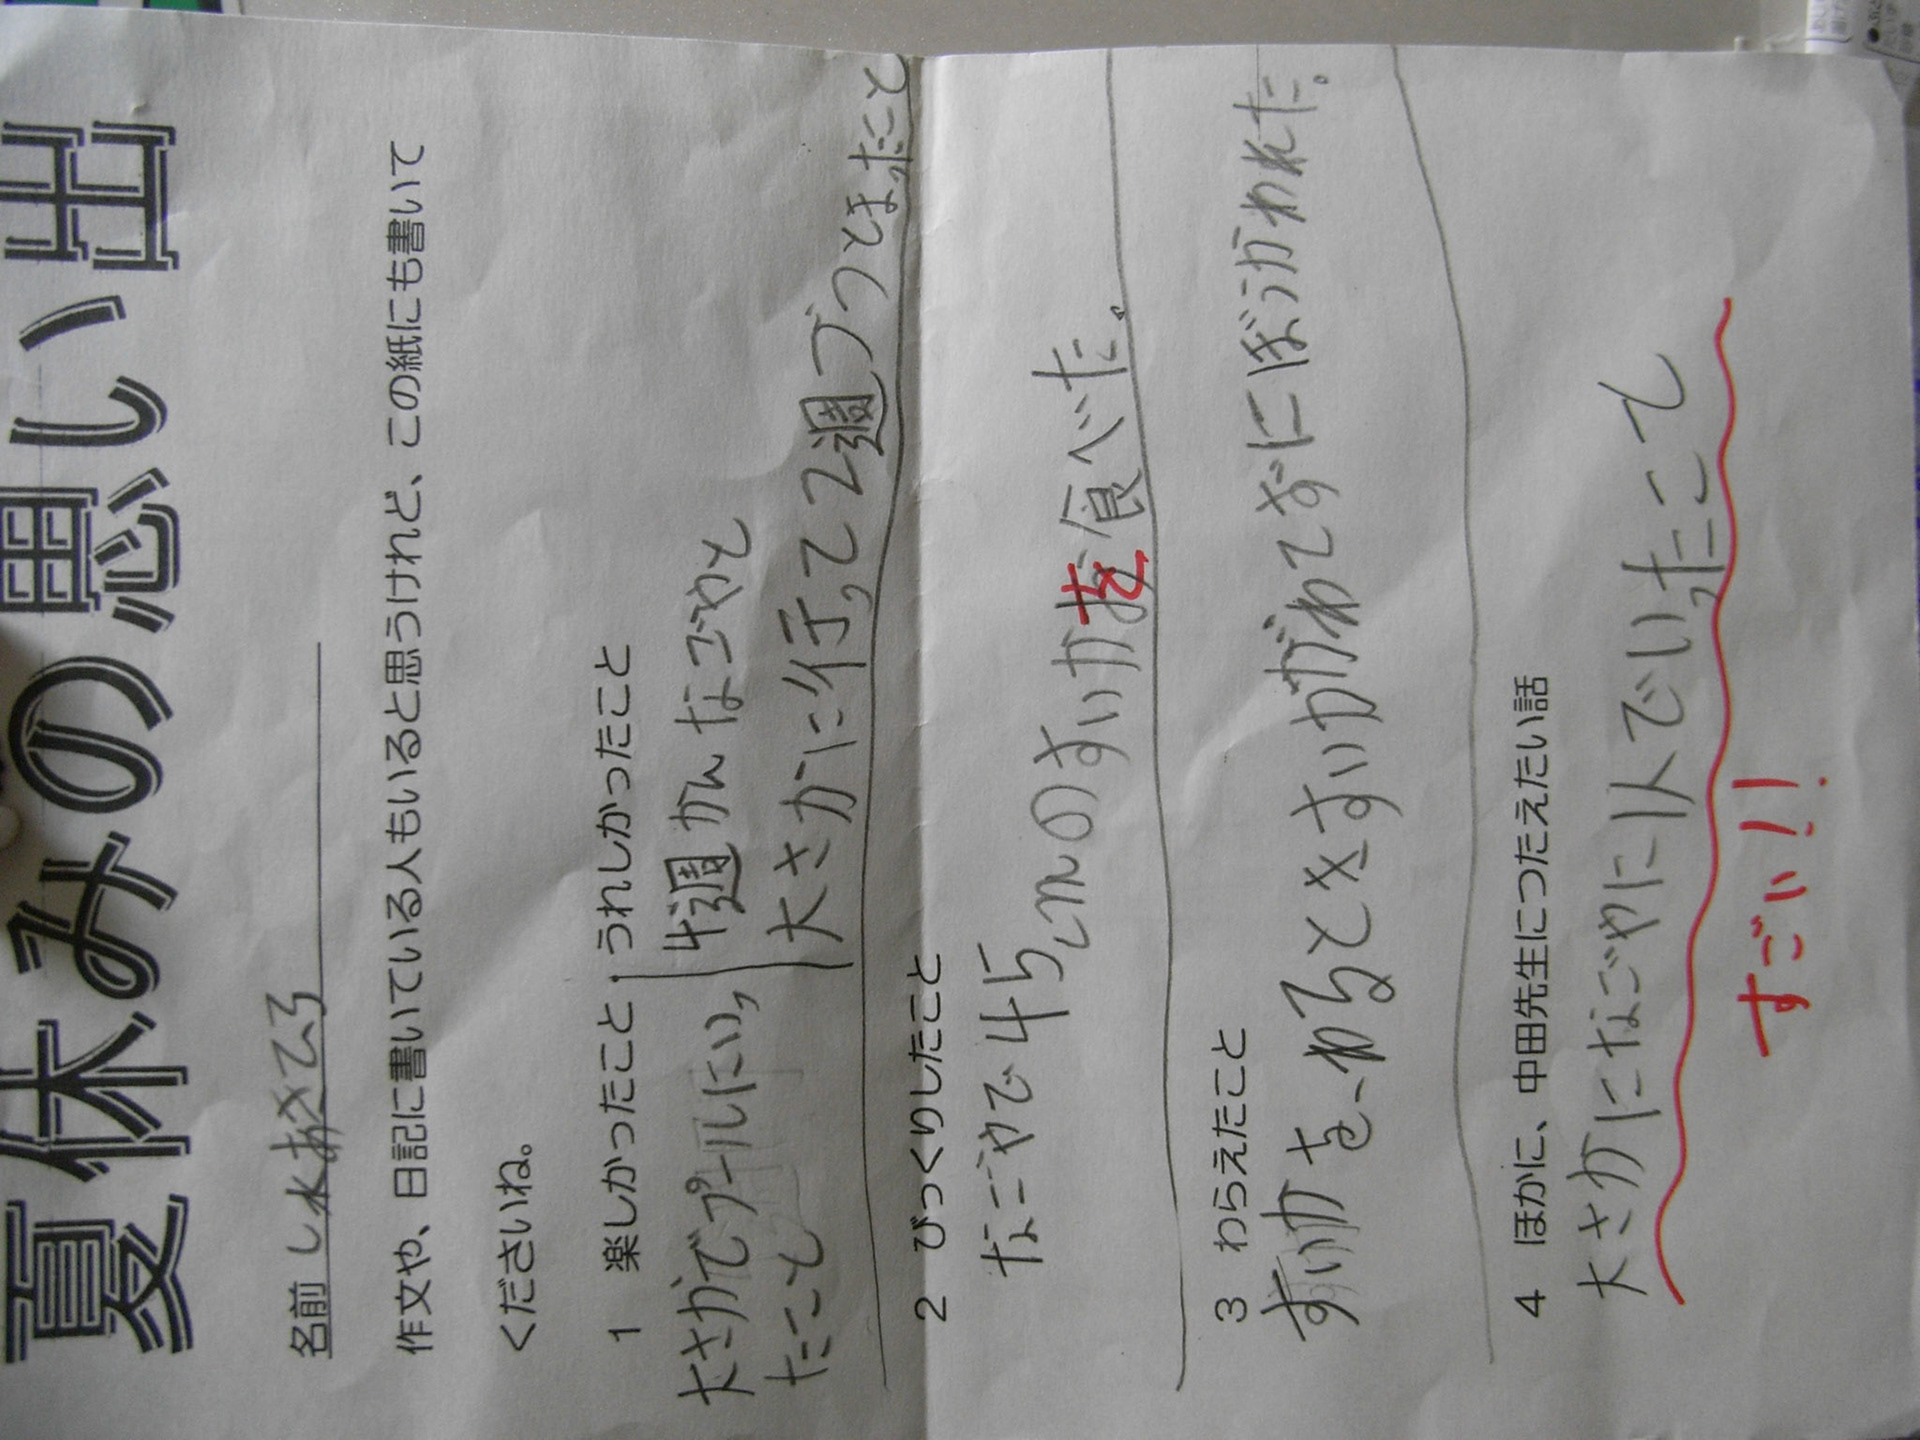 夏休みの思い出
名前 し水あきひろ
作文や、日記に書いている人もいると思うけれど、この紙にも書いて
くださいね。
1 楽しかったこと・うれしかったこと
大さかでプールにいっ
たこと
4週かんなごやと
大さかに行って2週づつとまったこと
2 びっくりしたこと
なごやで45cmのすいかを食べた。
3 わらえたこと
すいかを、わるときすいかがわれてずにぼうがわれた。
4 ほかに、中田先生につたえたい話
大さかになごやに1人でいったこと
すごい!!